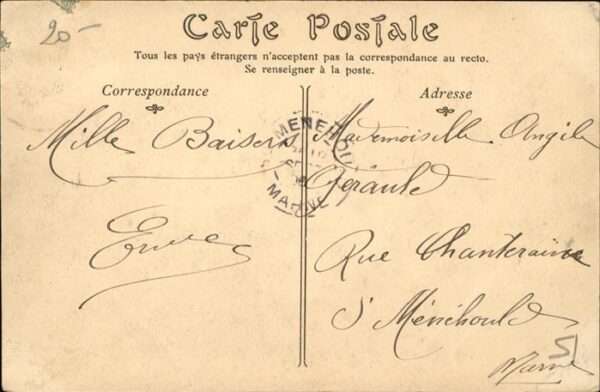 20-
Carte Postale
Tous les pays étrangers n'acceptent pas la correspondance au recto.
Se renseigner à la poste.
Correspondance
Adresse
Mille Baisers
MENEHOU
MARNE
Mademoiselle Angèle
Gérault
Rue Chanteraine
St Ménéhould
Marne
5